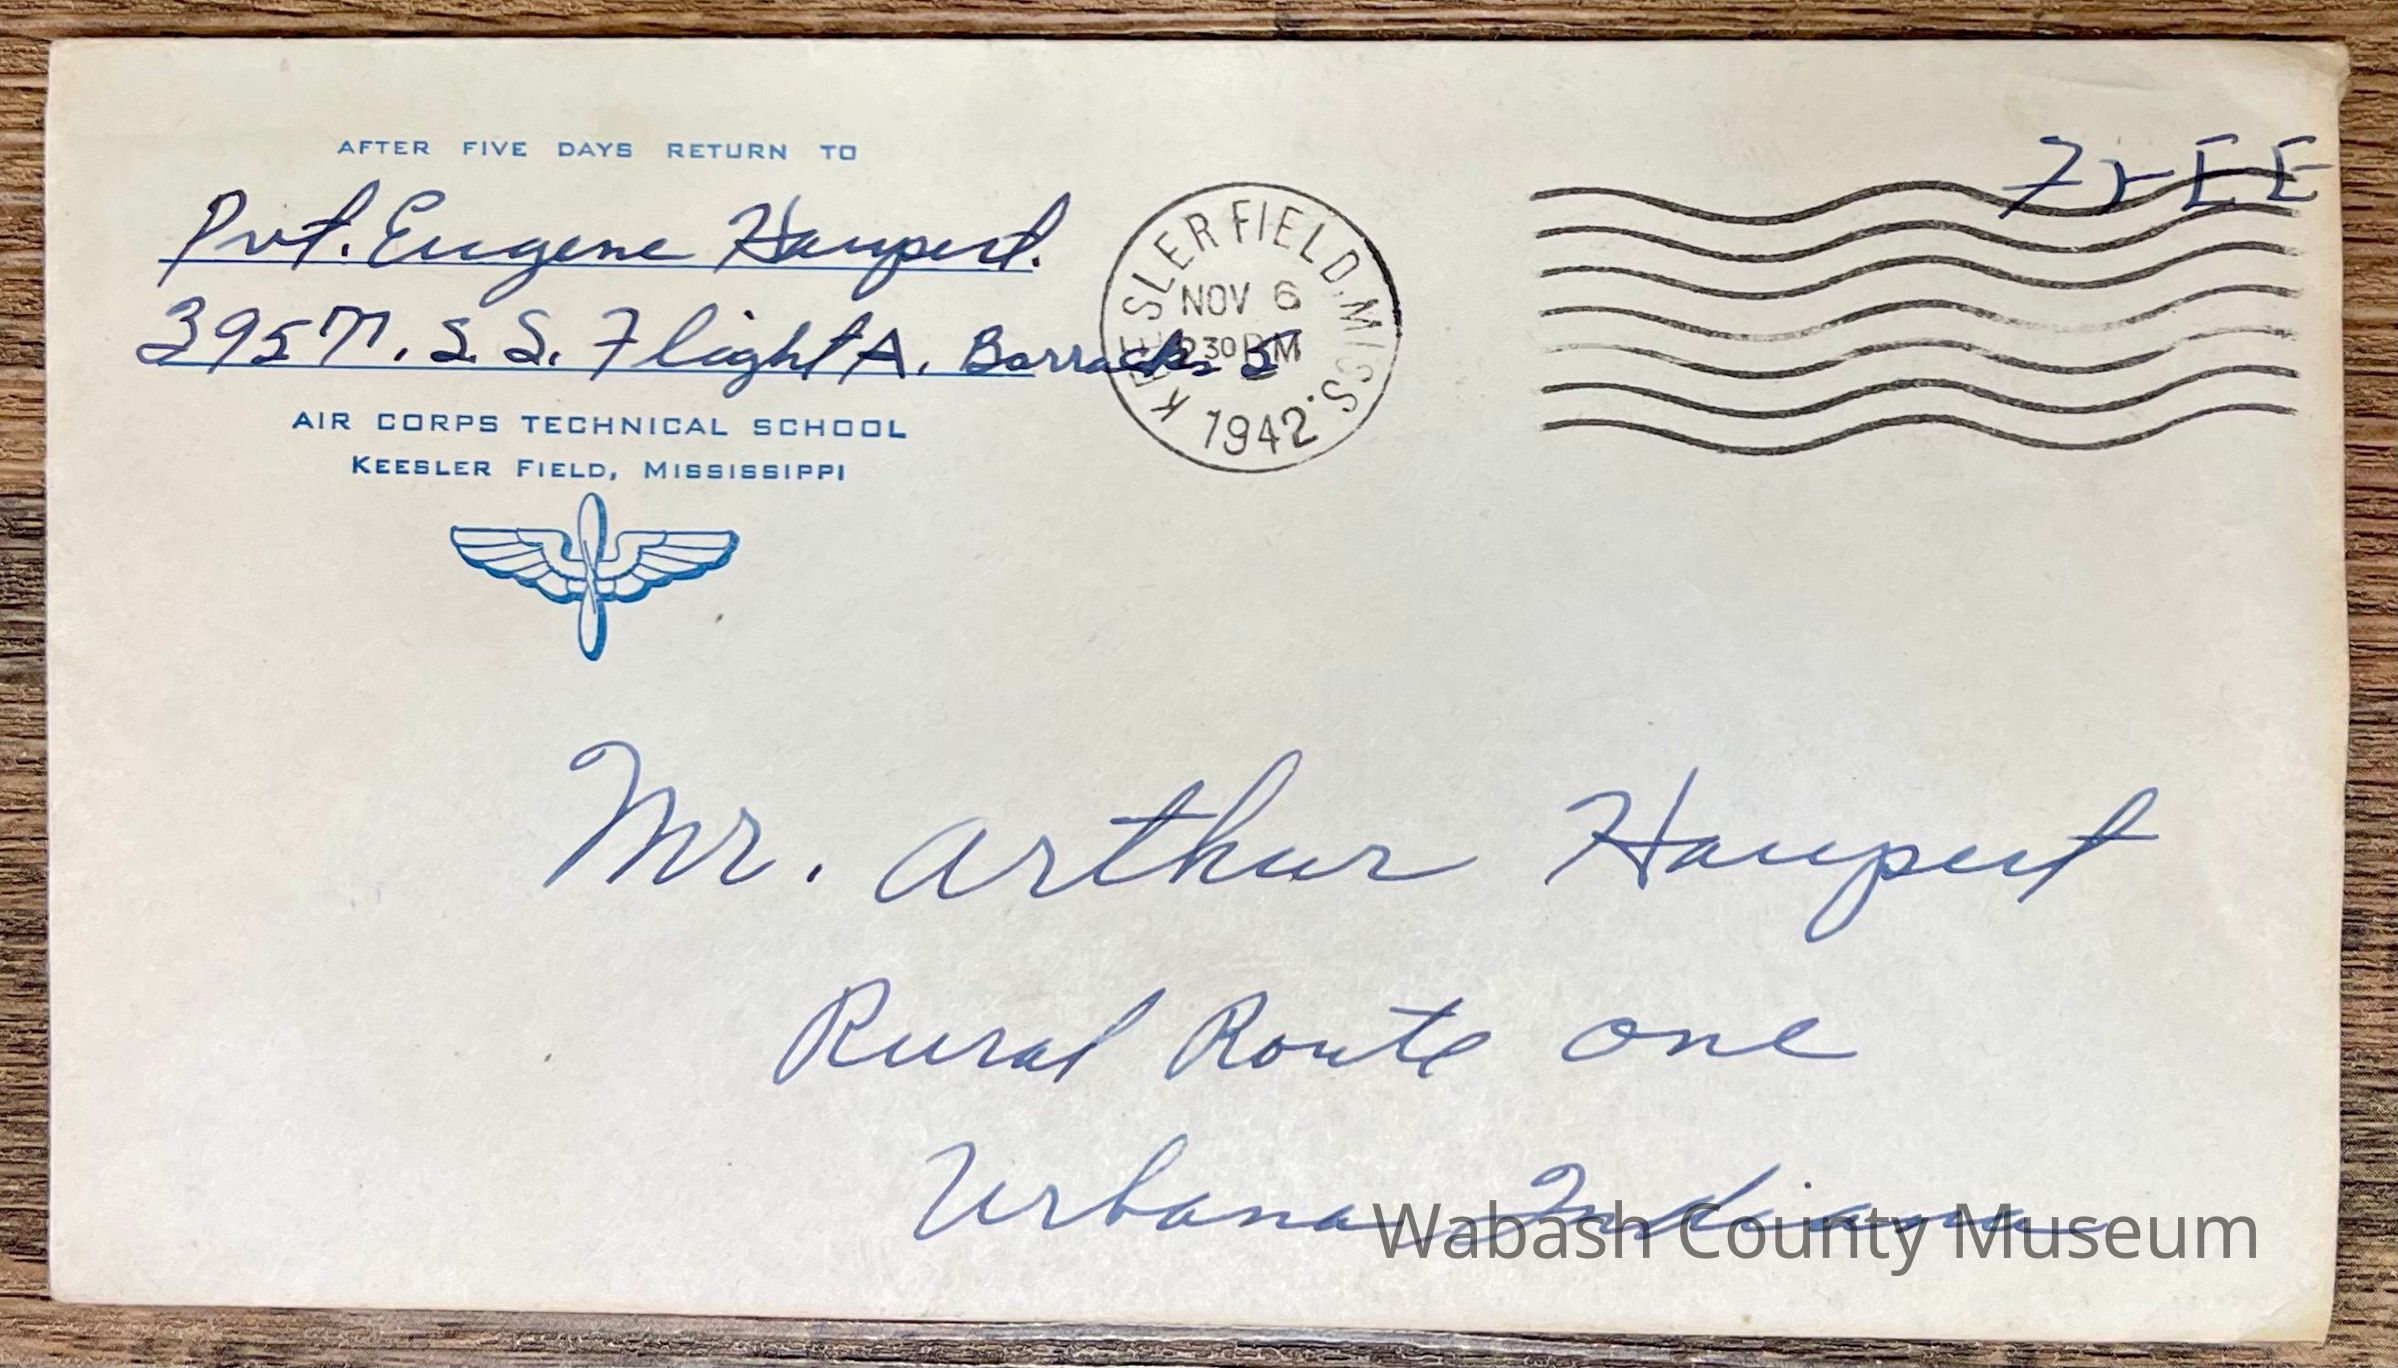 AFTER FIVE DAYS RETURN TO
Pvt. Eugene Haupert.
395 T. S. S. Flight A. Barracks 5
AIR CORPS TECHNICAL SCHOOL
KEESLER FIELD, MISSISSIPPI
KEESLER FIELD, MISS.
NOV 6
230 PM
1942
FrEE
Mr. Arthur Haupert
Rural Route one
Urbana, Indiana
Wabash County Museum